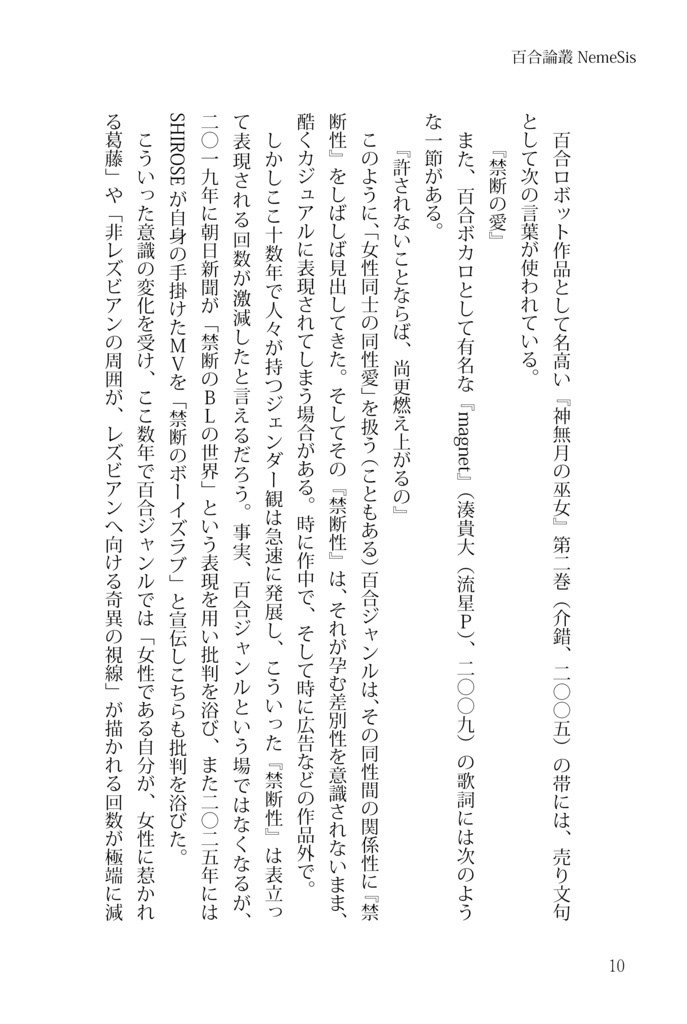 百合論叢 NemeSis
　百合ロボット作品として名高い『神無月の巫女』第二巻（介錯、二〇〇五）の帯には、売り文句
として次の言葉が使われている。
　『禁断の愛』
　また、百合ボカロとして有名な『magnet』（湊貴大（流星P）、二〇〇九）の歌詞には次のよう
な一節がある。
　『許されないことならば、尚更燃え上がるの』
　このように、「女性同士の同性愛」を扱う（こともある）百合ジャンルは、その同性間の関係性に『禁
断性』をしばしば見出してきた。そしてその『禁断性』は、それが孕む差別性を意識されないまま、
酷くカジュアルに表現されてしまう場合がある。時に作中で、そして時に広告などの作品外で。
　しかしここ十数年で人々が持つジェンダー観は急速に発展し、こういった『禁断性』は表立っ
て表現される回数が激減したと言えるだろう。事実、百合ジャンルという場ではなくなるが、
二〇一九年に朝日新聞が「禁断のBLの世界」という表現を用い批判を浴び、また二〇二五年には
SHIROSE が自身の手掛けたMVを「禁断のボーイズラブ」と宣伝しこちらも批判を浴びた。
　こういった意識の変化を受け、ここ数年で百合ジャンルでは「女性である自分が、女性に惹かれ
る葛藤」や「非レズビアンの周囲が、レズビアンへ向ける奇異の視線」が描かれる回数が極端に減
10